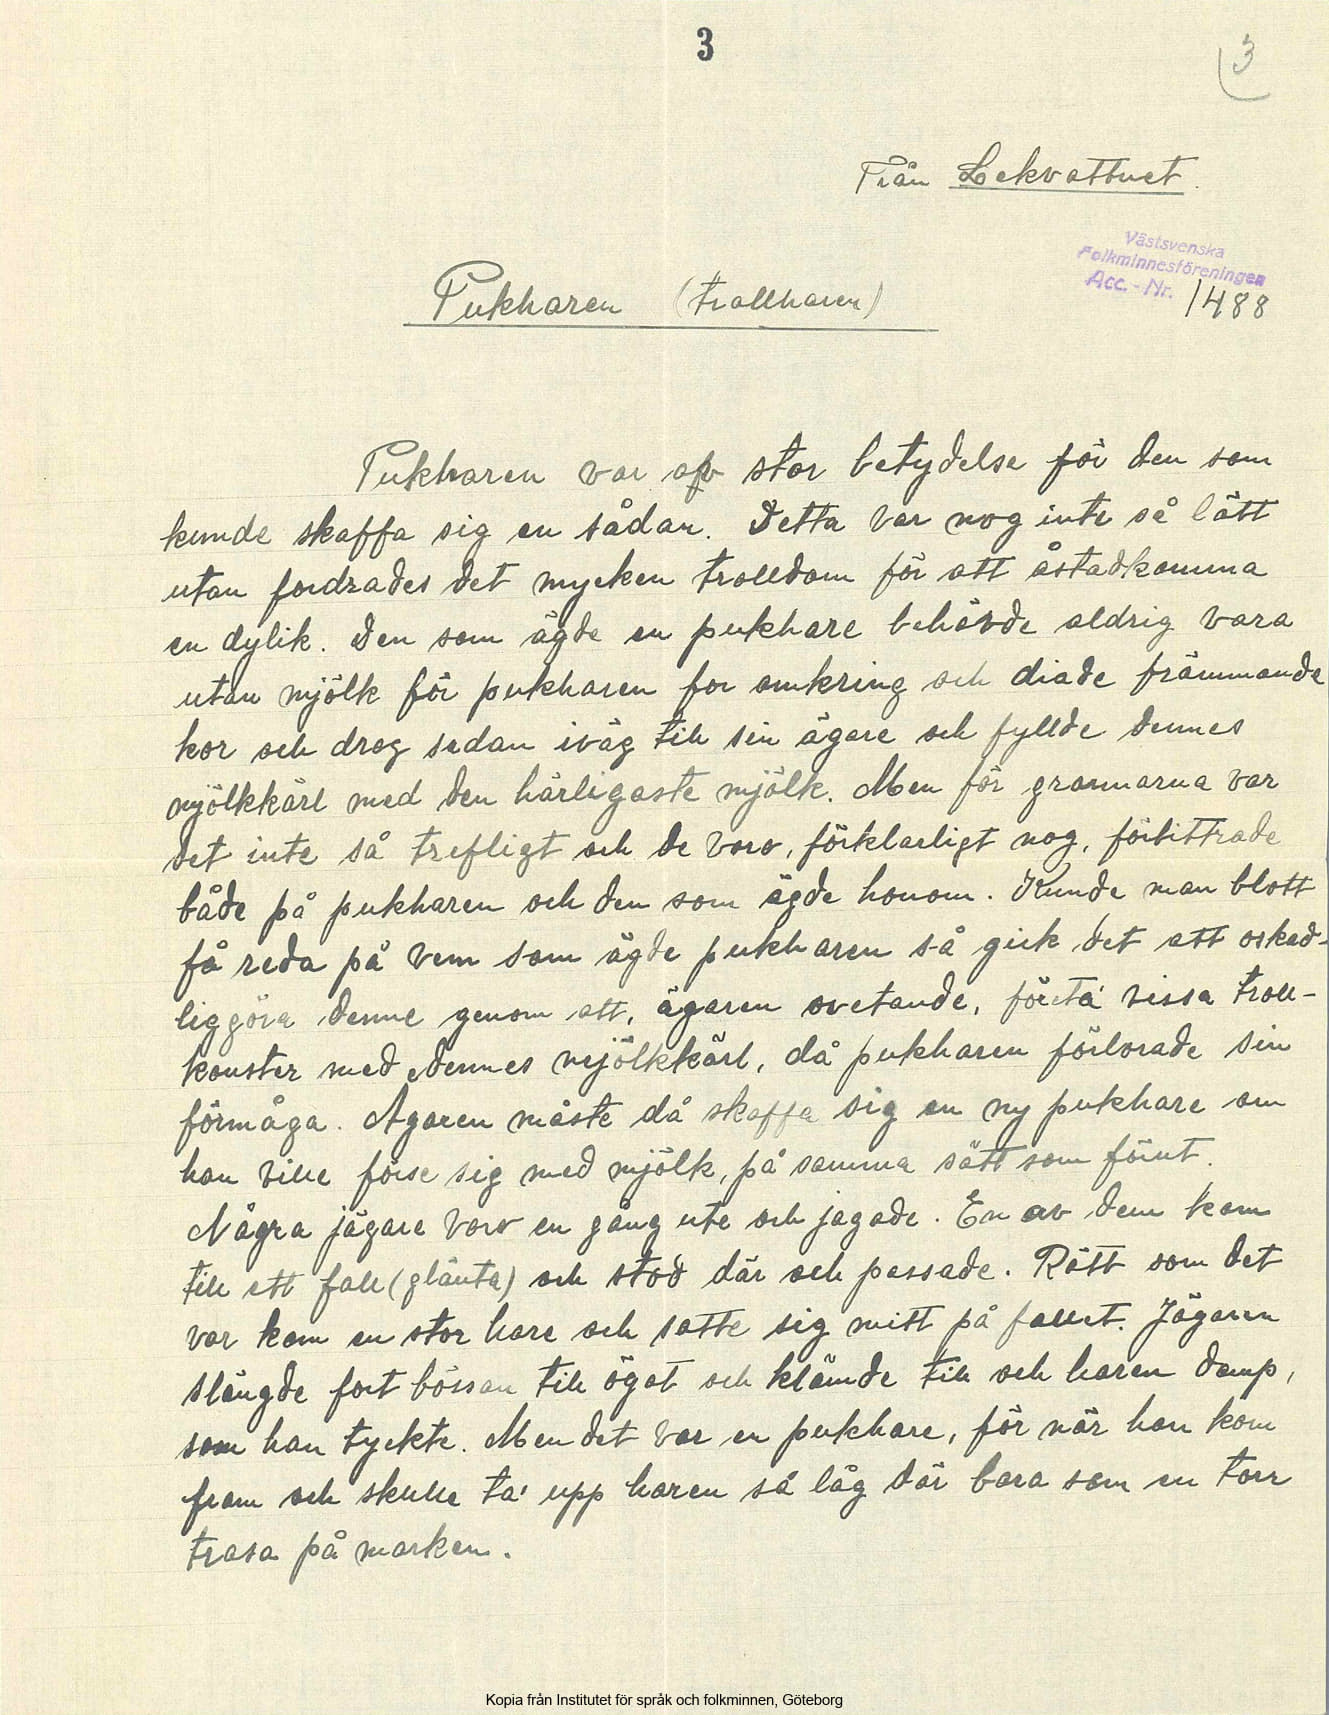 3
3
Från Lekvattnet.
Västsvenska
Folkminnesföreningen
Acc.-Nr. 1488
Pukharen (trollharen)
Pukharen var af stor betydelse för den som
kunde skaffa sig en sådan. Detta var nog inte så lätt
utan fordrades det mycken trolldom för att åstadkomma
en dylik. Den som ägde en pukhare behövde aldrig vara
utan mjölk för pukharen for omkring och diade främmande
kor och drog sedan iväg till sin ägare och fyllde dennes
mjölkkärl med den härligaste mjölk. Men för grannarna var
det inte så trefligt och de voro, förklarligt nog, förbittrade
både på pukharen och den som ägde honom. Kunde man blott
få reda på vem som ägde pukharen så gick det att oskad-
liggöra denne genom att, ägaren ovetande, företa' vissa troll-
konster med dennes mjölkkärl, då pukharen förlorade sin
förmåga. Ägaren måste då skaffa sig en ny pukhare om
han ville förse sig med mjölk, på samma sätt som förut.
Några jägare voro en gång ute och jagade. En av dem kom
till ett fall (glänta) och stod där och passade. Rätt som det
var kom en stor hare och satte sig mitt på fallet. Jägaren
slängde fort bössan till ögat och klämde till och haren damp,
som han tyckte. Men det var en pukhare, för när han kom
fram och skulle ta' upp haren så låg där bara som en torr
trasa på marken.
Kopia från Institutet för språk och folkminnen, Göteborg